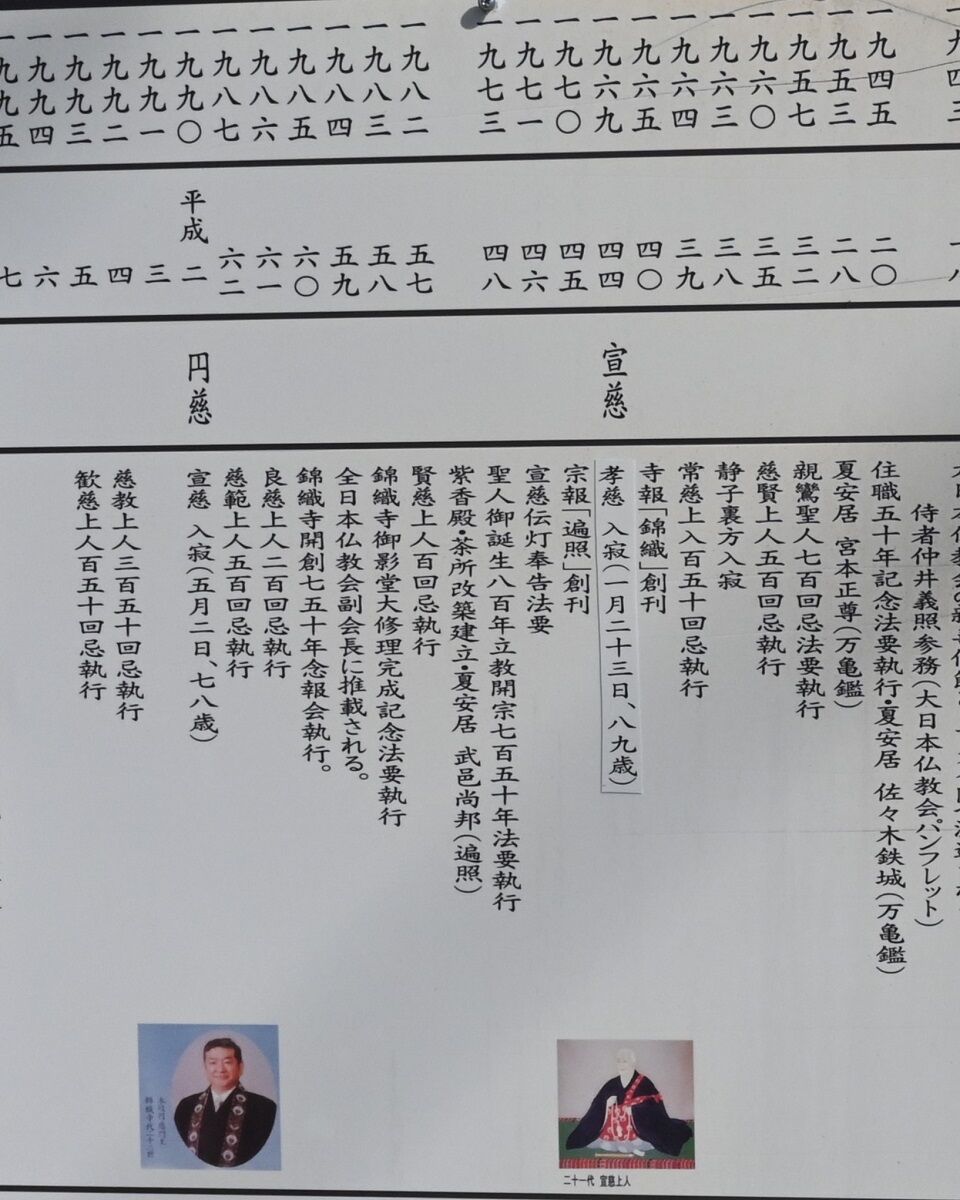 一九四三
一九四五
一九五三
一九五七
一九六〇
一九六三
一九六四
一九六五
一九六九
一九七〇
一九七一
一九七三
一九八二
一九八三
一九八四
一九八五
一九八六
一九八七
一九九〇
一九九一
一九九二
一九九三
一九九四
一九九五
一八
二〇
二八
三二
三五
三八
三九
四〇
四四
四五
四六
四八
五七
五八
五九
六〇
六一
六二
平成 二
三
四
五
六
七
宣慈
円慈
侍者仲井義照参務(大日本仏教会パンフレット)
住職五十年記念法要執行・夏安居 佐々木鉄城(万亀鑑)
夏安居 宮本正尊(万亀鑑)
親鸞聖人七百回忌法要執行
慈賢上人五百回忌執行
静子裏方入寂
常慈上人百五十回忌執行
寺報「錦織」創刊
孝慈 入寂(一月二十三日、八九歳)
宗報「遍照」創刊
宣慈伝灯奉告法要
聖人御誕生八百年立教開宗七百五十年法要執行
紫香殿・茶所改築建立・夏安居 武邑尚邦(遍照)
賢慈上人百回忌執行
錦織寺御影堂大修理完成記念法要執行
全日本仏教会副会長に推載される。
錦織寺開創七五十年念報会執行。
良慈上人二百回忌執行
慈範上人五百回忌執行
宣慈 入寂(五月二日、七八歳)
慈教上人三百五十回忌執行
歓慈上人百五十回忌執行
二十一代 宣慈上人